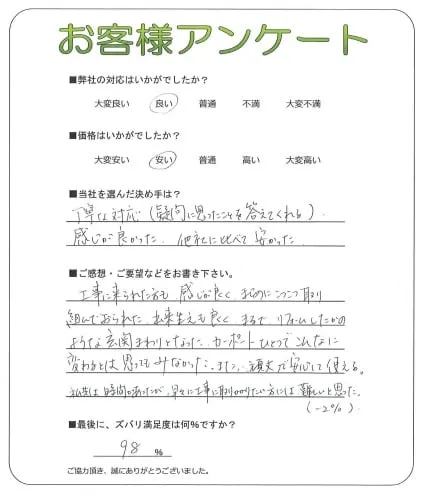 お客様アンケート
■弊社の対応はいかがでしたか?
大変良い 良い 普通 不満 大変不満
■価格はいかがでしたか?
大変安い 安い 普通 高い 大変高い
■当社を選んだ決め手は?
丁寧な対応(疑問に思ったことを答えてくれる)。
感じが良かった。他社に比べて安かった。
■ご感想・ご要望などをお書き下さい。
工事に来られた方も感じが良く、まじめにコツコツ取り
組んでおられた。出来栄えも良く、まるでリフォームしたかの
ような玄関まわりとなった。カーポートひとつでこんなに
変わるとは思ってもみなかった。また、頑丈で安心して使える。
私共は時間があったが、早々に工事に取りかかりたい方には難しいと思った。
(-2%)
■最後に、ズバリ満足度は何%ですか?
98 %
ご協力頂き、誠にありがとうございました。